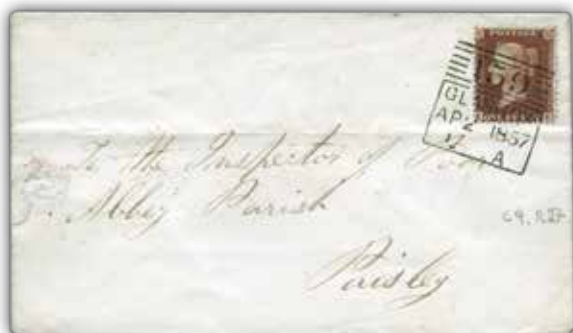 POSTAGE
159
GL
AP 2 1857
A
To the Inspector of Poor
Abbey Parish
Paisley